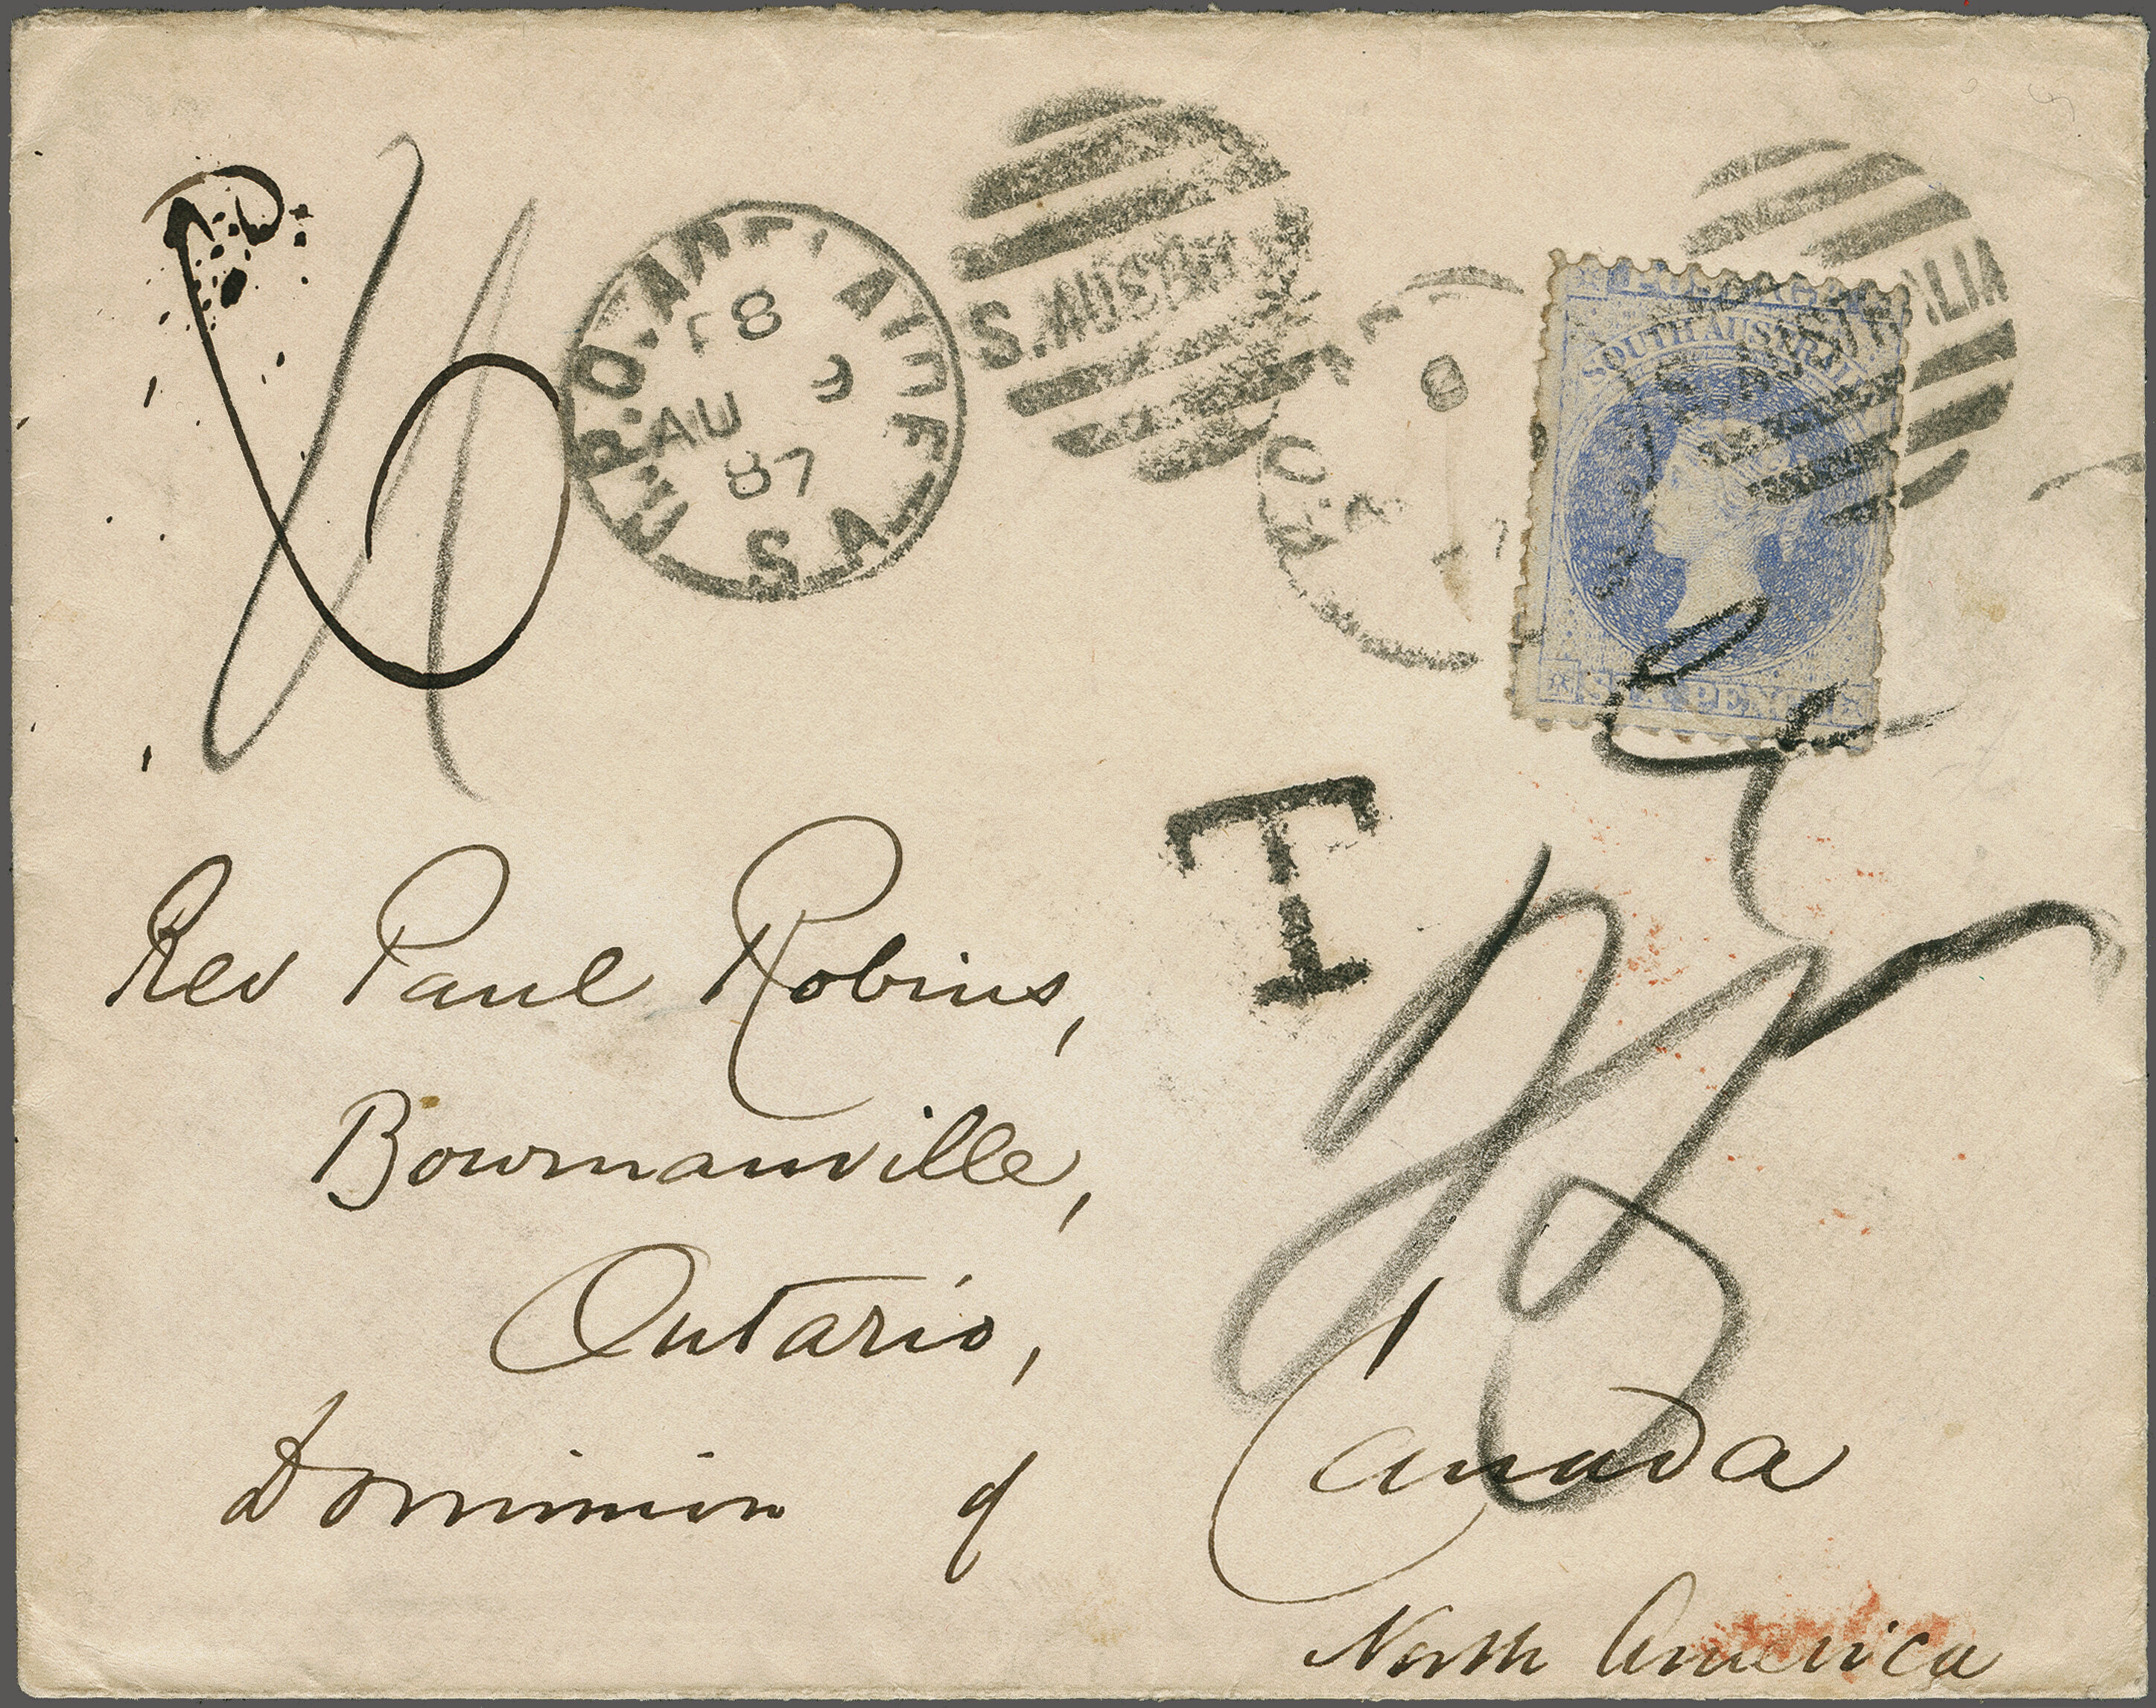 G.P.O. ADELAIDE
F8
AU 9
87
S.A
S. AUSTRALIA
POSTAGE
SOUTH AUSTRALIA
SIX PENCE
T
Rev Paul Robins,
Bowmanville,
Ontario,
Dominion of Canada
North America